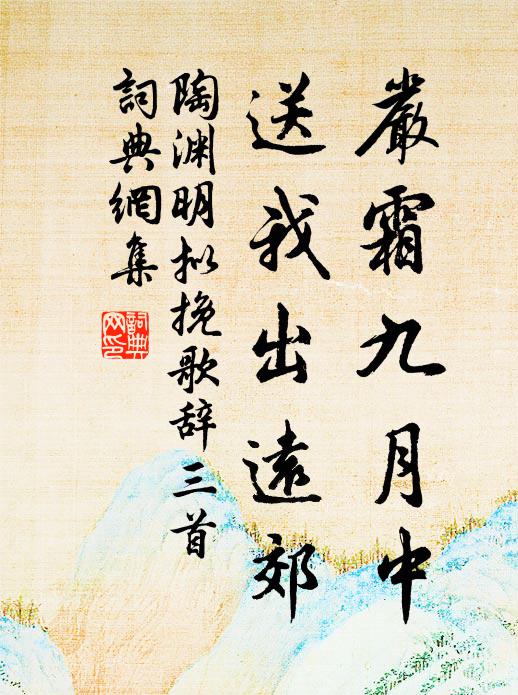 嚴霜九月中
送我出遠郊
陶渊明拟挽歌辞三首
詞典網集
詞典网印